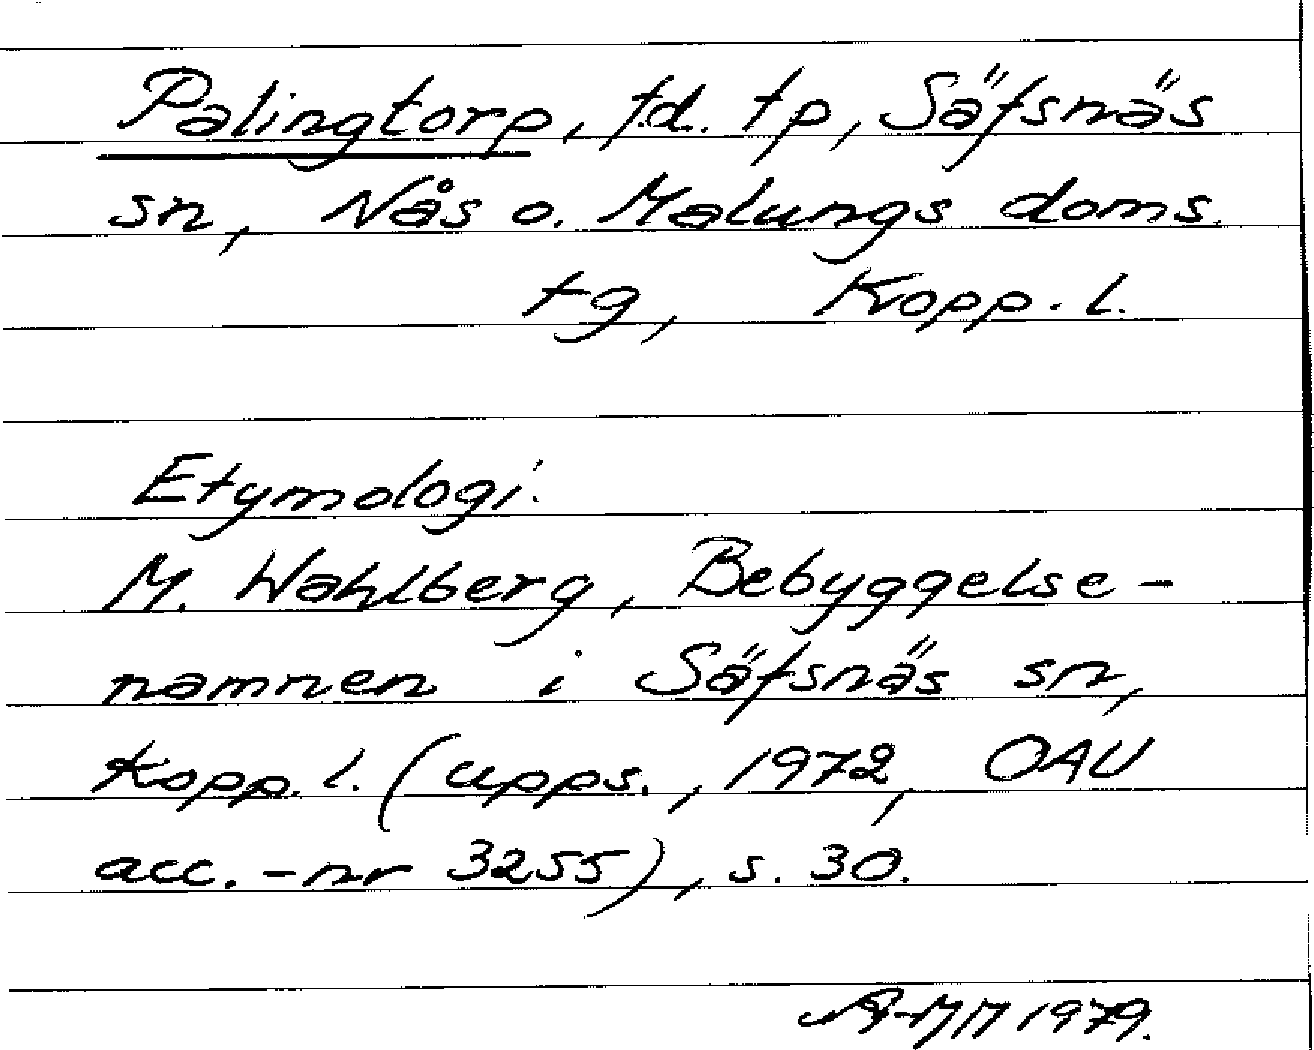 Palingtorp, f.d. tp, Säfsnäs
sn, Nås o. Malungs doms.
tg, Kopp. l.
Etymologi:
M. Wahlberg, Bebyggelse-
namnen i Säfsnäs sn,
Kopp. l. (Upps., 1972, OAU
acc.-nr 3255), s. 30.
1979.